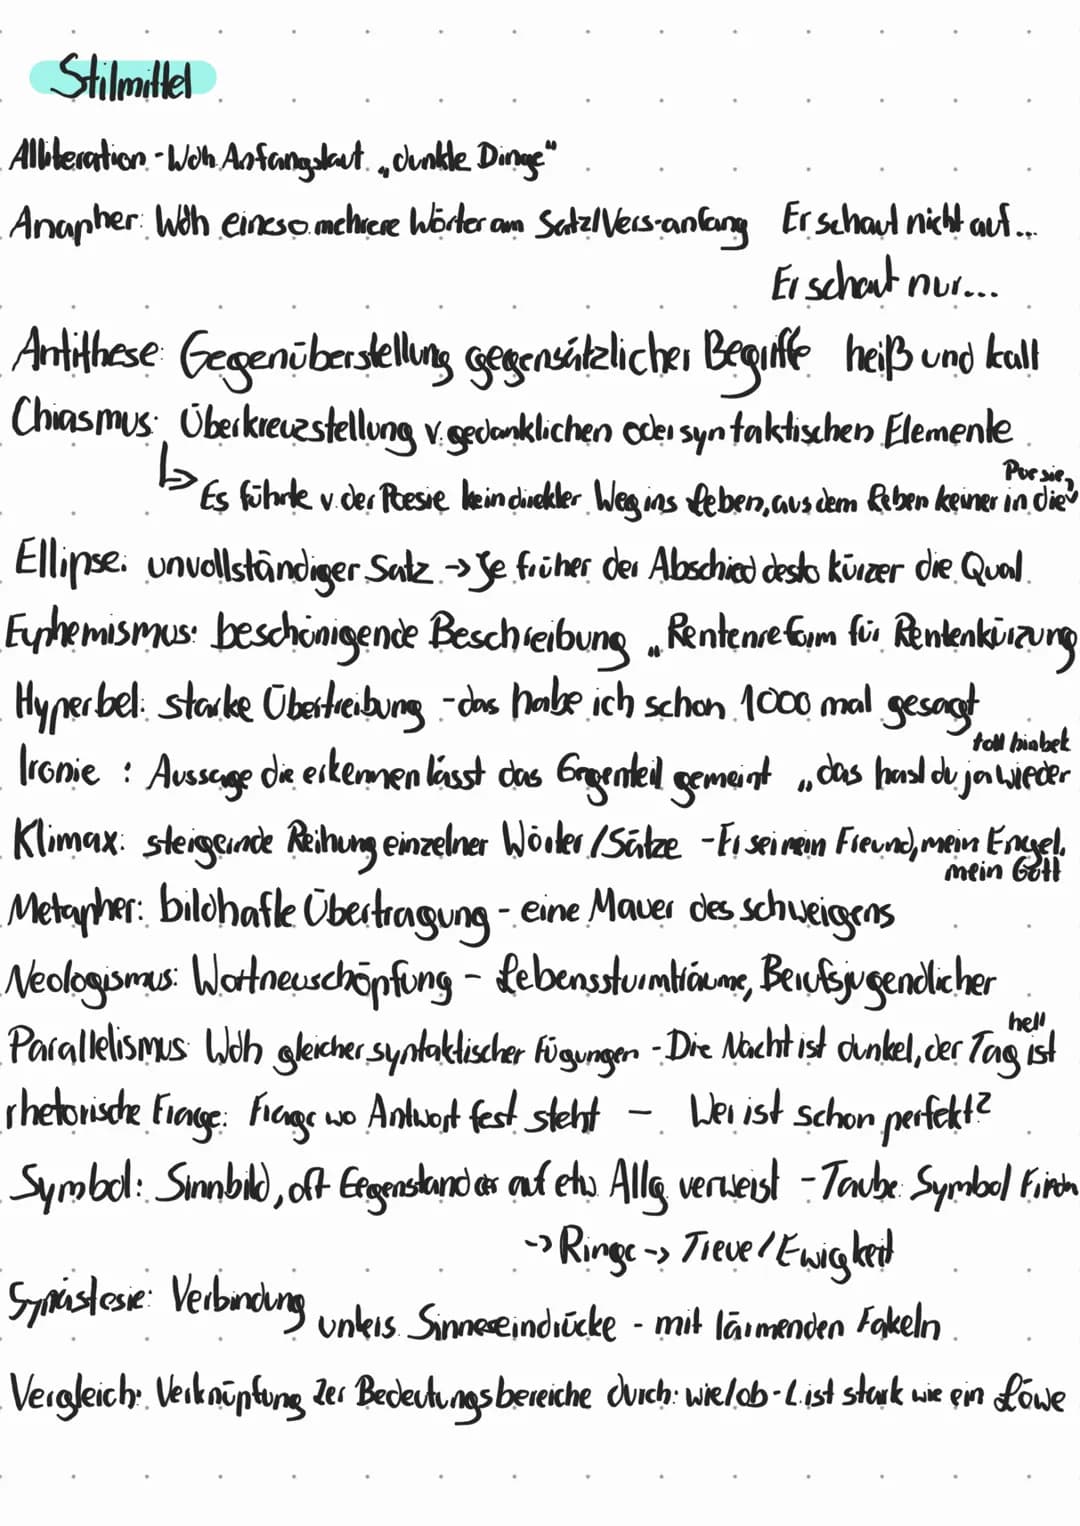 Stilmittel
Alliteration - Wdh. Anfangslaut „dunkle Dinge“
Anapher: Wdh eines o. mehrere Wörter am Satz/Vers-anfang Er schaut nicht auf...
Er schaut nur...
Antithese: Gegenüberstellung gegensätzlicher Begriffe heiß und kalt
Chiasmus: Überkreuzstellung v. gedanklichen oder syntaktischen Elemente
↳ Es führte v. der Poesie kein direkter Weg ins Leben, aus dem Leben keiner in die Poesie
Ellipse: unvollständiger Satz → Je früher der Abschied desto kürzer die Qual
Euphemismus: beschönigende Beschreibung „Rentenreform für Rentenkürzung
Hyperbel: starke Übertreibung - das habe ich schon 1000 mal gesagt
Ironie: Aussage die erkennen lässt das Gegenteil gemeint „das hast du ja wieder toll
Klimax: steigernde Reihung einzelner Wörter/Sätze - Er sei mein Freund, mein Engel, mein Gott
Metapher: bildhafte Übertragung - eine Mauer des schweigens
Neologismus: Wortneuschöpfung - Lebenssturmträume, Berufsjugendlicher
Parallelismus Wdh gleicher syntaktischer Fügungen - Die Nacht ist dunkel, der Tag ist hell
rhetorische Frage: Frage wo Antwort fest steht - Wer ist schon perfekt?
Symbol: Sinnbild, oft Gegenstand der auf etw. Allg. verweist - Taube Symbol
-> Ringe -> Treue/Ewigkeit
Synästesie: Verbindung unters. Sinneseindrücke - mit lärmenden Fakeln
Vergleich: Verknüpfung 2er Bedeutungsbereiche durch: wie/ob - L. ist stark wie ein Löwe